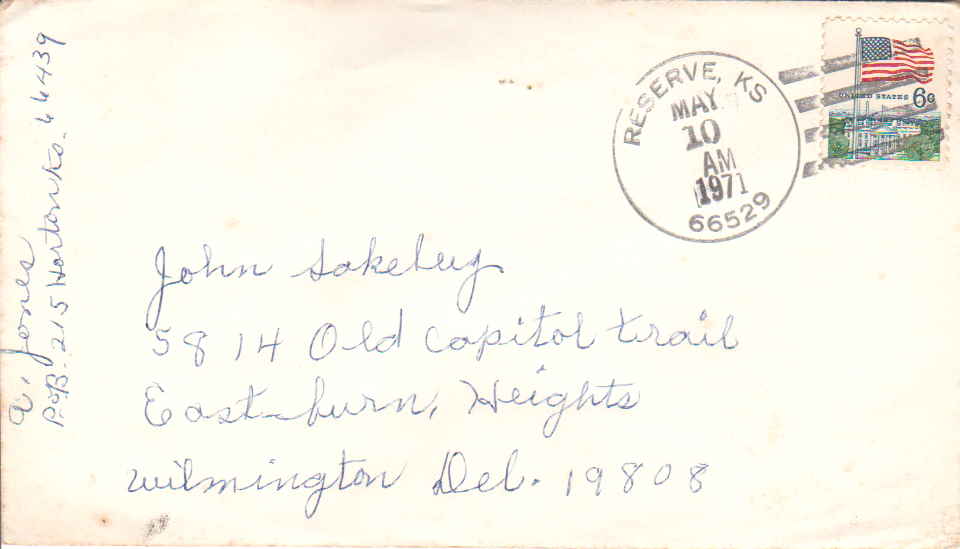 a. Jones
P.O.B. 215 Horton Ks. 66439
RESERVE, KS
MAY
10
AM
1971
66529
UNITED STATES 6c
John
5814 Old Capitol Trail
East-burn, Heights
Wilmington Del. 19808